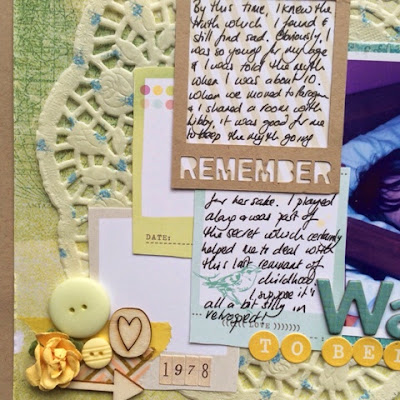 By this time, I knew the
truth which I found &
still find sad. Obviously, I
was so young for my age
& I was told the myth
when I was about 10.
When we moved to Paragon
& I shared a room with
Libby, it was good for me
to keep the myth going
REMEMBER
for her sake. I played
along & was part of
the secret which certainly
helped me to deal with
this last remnant of
childhood.
I suppose it's
all a bit silly in
retrospect!
DATE:
LOVE
Wa
TO BEL
1978